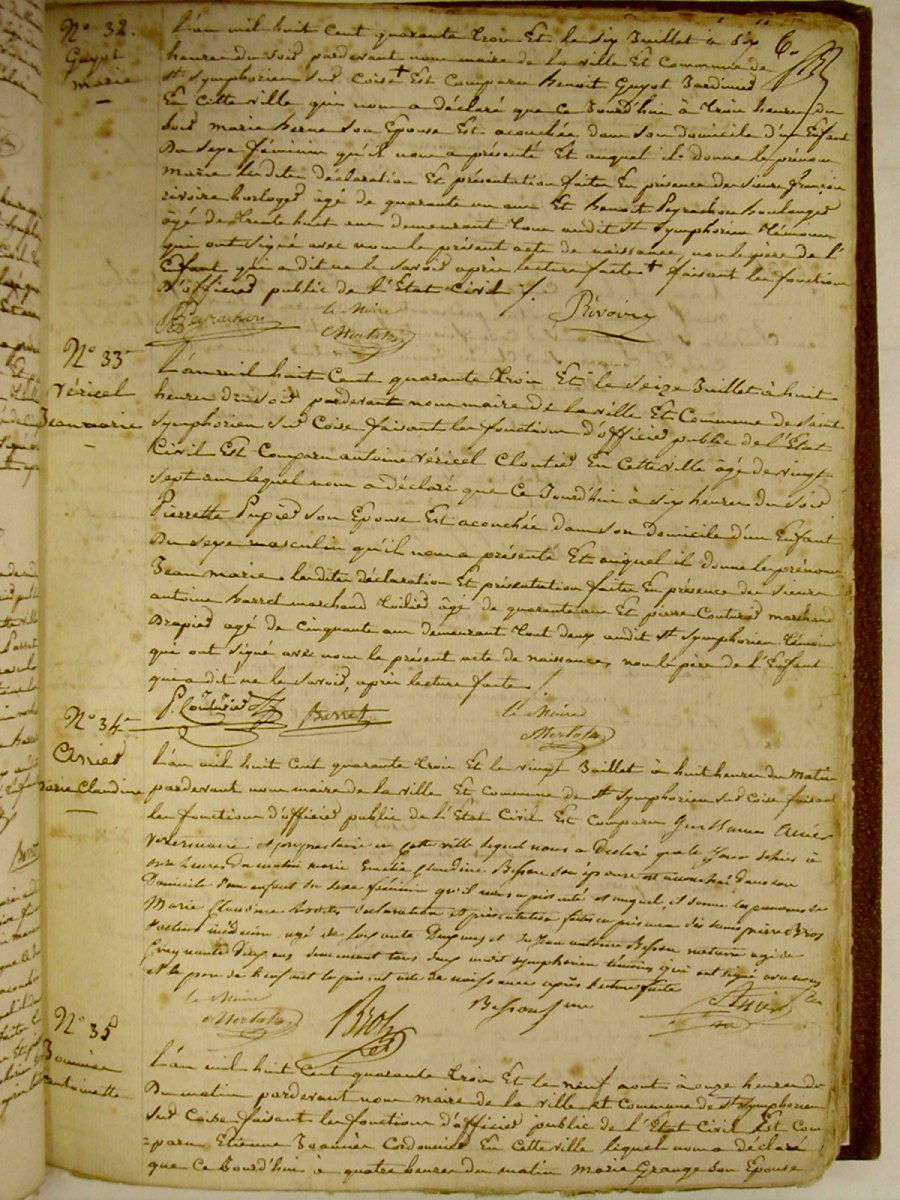 N° 32.
Guyot
marie
L'an mil huit Cent quarante trois Et le six Juillet à six
heures du soir pardevant nous maire de la ville Et Commune de
St Symphorien sur Coise + Est Comparu Benoit Guyot Jardinier
En Cette ville qui nous a déclaré que Ce Jourd'hui à trois heures du
soir marie son Epouse Est acouchée dans son domicile d'un Enfant
Du Sexe féminin qu'il nous a présenté Et auquel il donne le prénom
Marie lesdites déclaration Et présentation faites En présence des sieurs françois
rivoire horloger âgé de quarante un ans Et Benoit Peyrachon Boulanger
âgé de trente huit ans demeurant tous audit St Symphorien témoins
qui ont signé avec nous le présent acte de naissance, non le père de l'
Enfant qui a dit ne le savoir après lecture faite + faisant les fonctions
D'officier public de l'Etat Civil /.
Peyrachon le Maire Rivoire
N° 33
Véricel
Jean marie
L'an mil huit Cent quarante trois Et le seize Juillet à huit
heures du soir pardevant nous maire de la ville Et Commune de Saint
Symphorien sur Coise faisant les fonctions d'officier public de l'Etat
Civil Est Comparu antoine Véricel Cloutier En Cette ville âgé de vingt
sept ans lequel nous a déclaré que Ce Jourd'hui à six heures du soir
Pierrette Pupier son Epouse Est acouchée dans son Domicile d'un Enfant
Du Sexe masculin qu'il nous a présenté Et auquel il donne les prénoms
Jean marie lesdites déclaration Et présentation faites En présence des sieurs
antoine Barret marchand âgé de quarante ans Et pierre Couturier marchand
Drapier agé de Cinquante ans demeurant tout deux audit St Symphorien témoins
qui ont signé avec nous le présent acte de naissance, non le père de l'Enfant
qui a dit ne le savoir, après lecture faite /
P. Couturier Barret le Maire
N° 34
marie Claudine
L'an mil huit Cent quarante trois Et le vingt Juillet à huit heures du matin
pardevant nous maire de la ville Et Commune de St Symphorien sur Coise faisant
les fonctions d'officier public de l'Etat Civil Est Comparu Guillaume
Veterinaire et proprietaire en cette ville lequel nous a Declaré que le Jour
onze heures du matin marie Claudine Besson son épouse est accouchée dans son
Domicile d'un enfant du sexe féminin qu'il nous a présenté et auquel il donne les prenoms de
Marie Claudine lesdites declaration et présentation faites en présence des sieurs pierre Bros
docteur médecin agé de soixante Deux ans et de Jean antoine Besson notaire agé de
Cinquante Deux ans demeurant tous deux audit st symphorien témoins qui ont signé avec nous
et le père de l'enfant le présent acte de naissance après lecture faite
le Maire Bros Besson
N° 35
Joannier
antoinette
L'an mil huit Cent quarante trois Et le neuf aout à onze heures du
Du matin pardevant nous maire de la ville et Commune de St Symphorien
sur Coise faisant les fonctions d'officier public de l'Etat Civil Est Com-
=paru Etienne Joannier Cordonnier En Cette ville lequel nous a déclaré
que Ce Jourd'hui à quatre heures du matin Marie Grange son Epouse